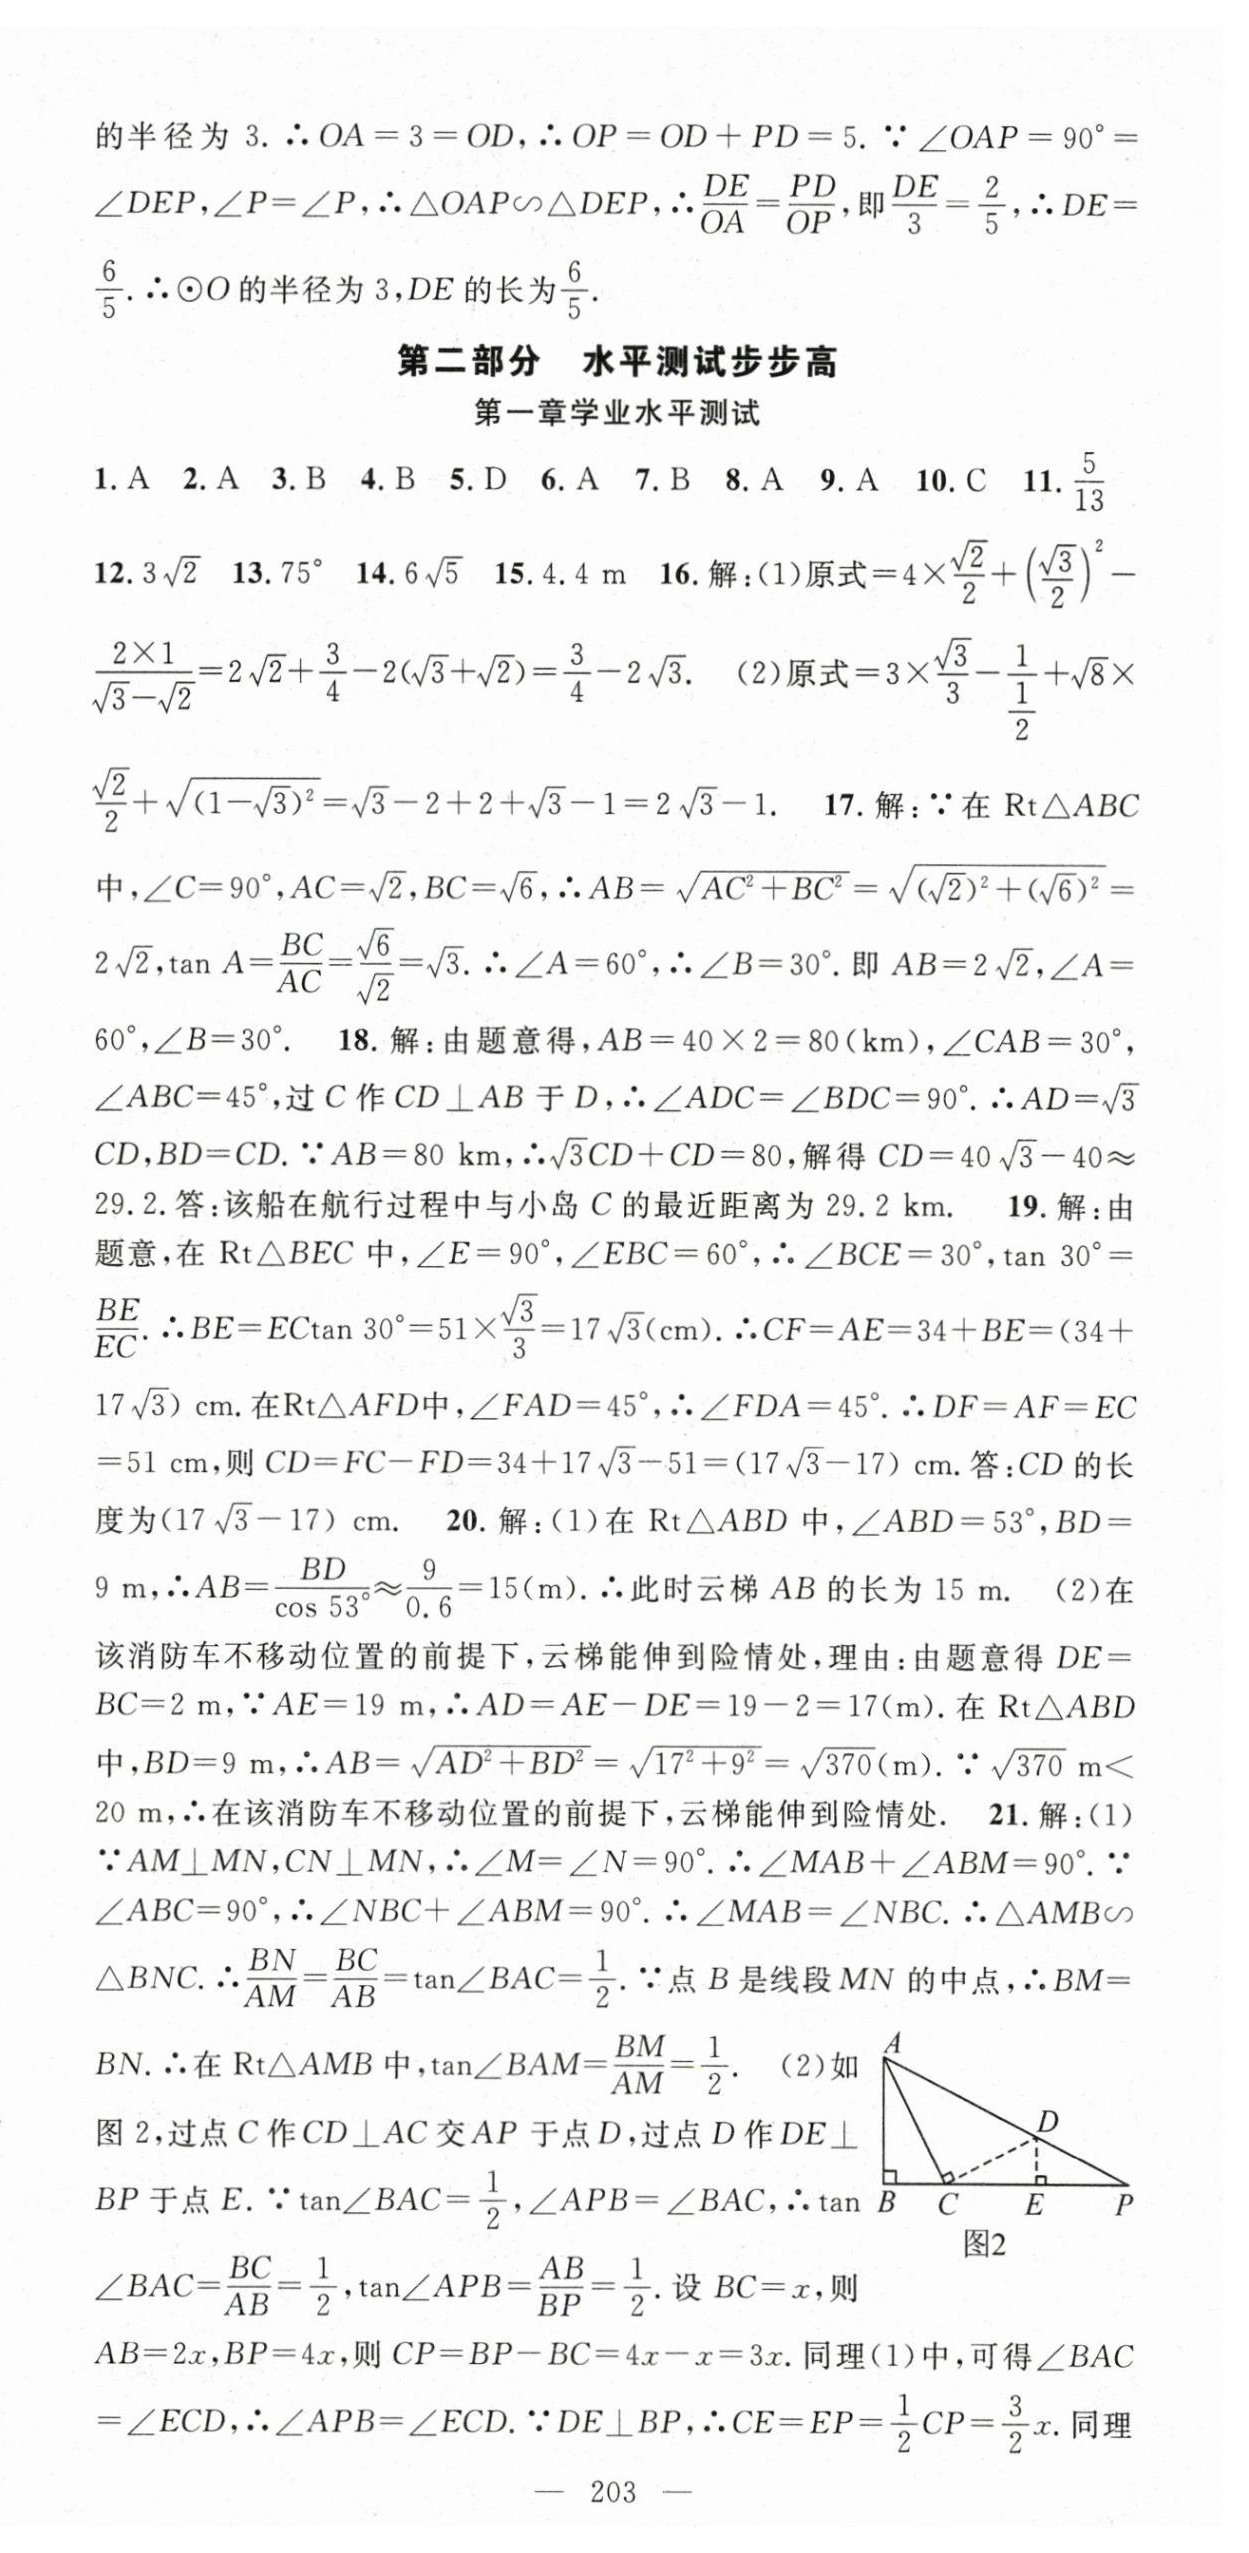 的半径为 3. ∴OA=3=OD,∴OP=OD+PD=5. ∵∠OAP=90°=
∠DEP,∠P=∠P,∴△OAP∽△DEP,∴DE/OA=PD/OP,即DE/3=2/5,∴DE=
6/5.∴⊙O的半径为 3,DE 的长为6/5.
第二部分 水平测试步步高
第一章学业水平测试
1. A 2. A 3. B 4. B 5. D 6. A 7. B 8. A 9. A 10. C 11. 5/13
12. 3√2 13. 75° 14. 6√5 15. 4.4 m 16. 解:(1)原式=4×√2/2+(√3/2)²-
2×1/(√3-√2)=2√2+3/4-2(√3+√2)=3/4-2√3. (2)原式=3×√3/3-1/(1/2)+√8×
√2/2+√((1-√3)²)=√3-2+2+√3-1=2√3-1. 17. 解:∵在 Rt△ABC
中,∠C=90°,AC=√2,BC=√6,∴AB=√(AC²+BC²)=√((√2)²+(√6)²)=
2√2,tan A=BC/AC=√6/√2=√3. ∴∠A=60°,∴∠B=30°. 即 AB=2√2,∠A=
60°,∠B=30°. 18. 解:由题意得,AB=40×2=80(km),∠CAB=30°,
∠ABC=45°,过 C 作 CD⊥AB 于 D,∴∠ADC=∠BDC=90°. ∴AD=√3
CD,BD=CD. ∵AB=80 km,∴√3CD+CD=80,解得 CD=40√3-40≈
29.2. 答:该船在航行过程中与小岛 C 的最近距离为 29.2 km. 19. 解:由
题意,在 Rt△BEC 中,∠E=90°,∠EBC=60°,∴∠BCE=30°,tan 30°=
BE/EC. ∴BE=ECtan 30°=51×√3/3=17√3(cm). ∴CF=AE=34+BE=(34+
17√3) cm. 在Rt△AFD中,∠FAD=45°,∴∠FDA=45°. ∴DF=AF=EC
=51 cm,则 CD=FC-FD=34+17√3-51=(17√3-17) cm. 答:CD 的长
度为(17√3-17) cm. 20. 解:(1)在 Rt△ABD 中,∠ABD=53°,BD=
9 m,∴AB=BD/cos 53°≈9/0.6=15(m). ∴此时云梯 AB 的长为 15 m. (2)在
该消防车不移动位置的前提下,云梯能伸到险情处,理由:由题意得 DE=
BC=2 m,∵AE=19 m,∴AD=AE-DE=19-2=17(m). 在 Rt△ABD
中,BD=9 m,∴AB=√(AD²+BD²)=√(17²+9²)=√370(m). ∵√370 m<
20 m,∴在该消防车不移动位置的前提下,云梯能伸到险情处. 21. 解:(1)
∵AM⊥MN,CN⊥MN,∴∠M=∠N=90°. ∴∠MAB+∠ABM=90°. ∵
∠ABC=90°,∴∠NBC+∠ABM=90°. ∴∠MAB=∠NBC. ∴△AMB∽
△BNC. ∴BN/AM=BC/AB=tan∠BAC=1/2. ∵点 B 是线段MN 的中点,∴BM=
BN. ∴在 Rt△AMB 中,tan∠BAM=BM/AM=1/2. (2)如
图 2,过点 C 作 CD⊥AC 交 AP 于点 D,过点 D 作 DE⊥
BP 于点 E. ∵tan∠BAC=1/2,∠APB=∠BAC,∴tan
∠BAC=BC/AB=1/2,tan∠APB=AB/BP=1/2. 设 BC=x,则
A
D
B C E P
图2
AB=2x,BP=4x,则 CP=BP-BC=4x-x=3x. 同理(1)中,可得∠BAC
=∠ECD,∴∠APB=∠ECD. ∵DE⊥BP,∴CE=EP=1/2CP=3/2x. 同理
— 203 —